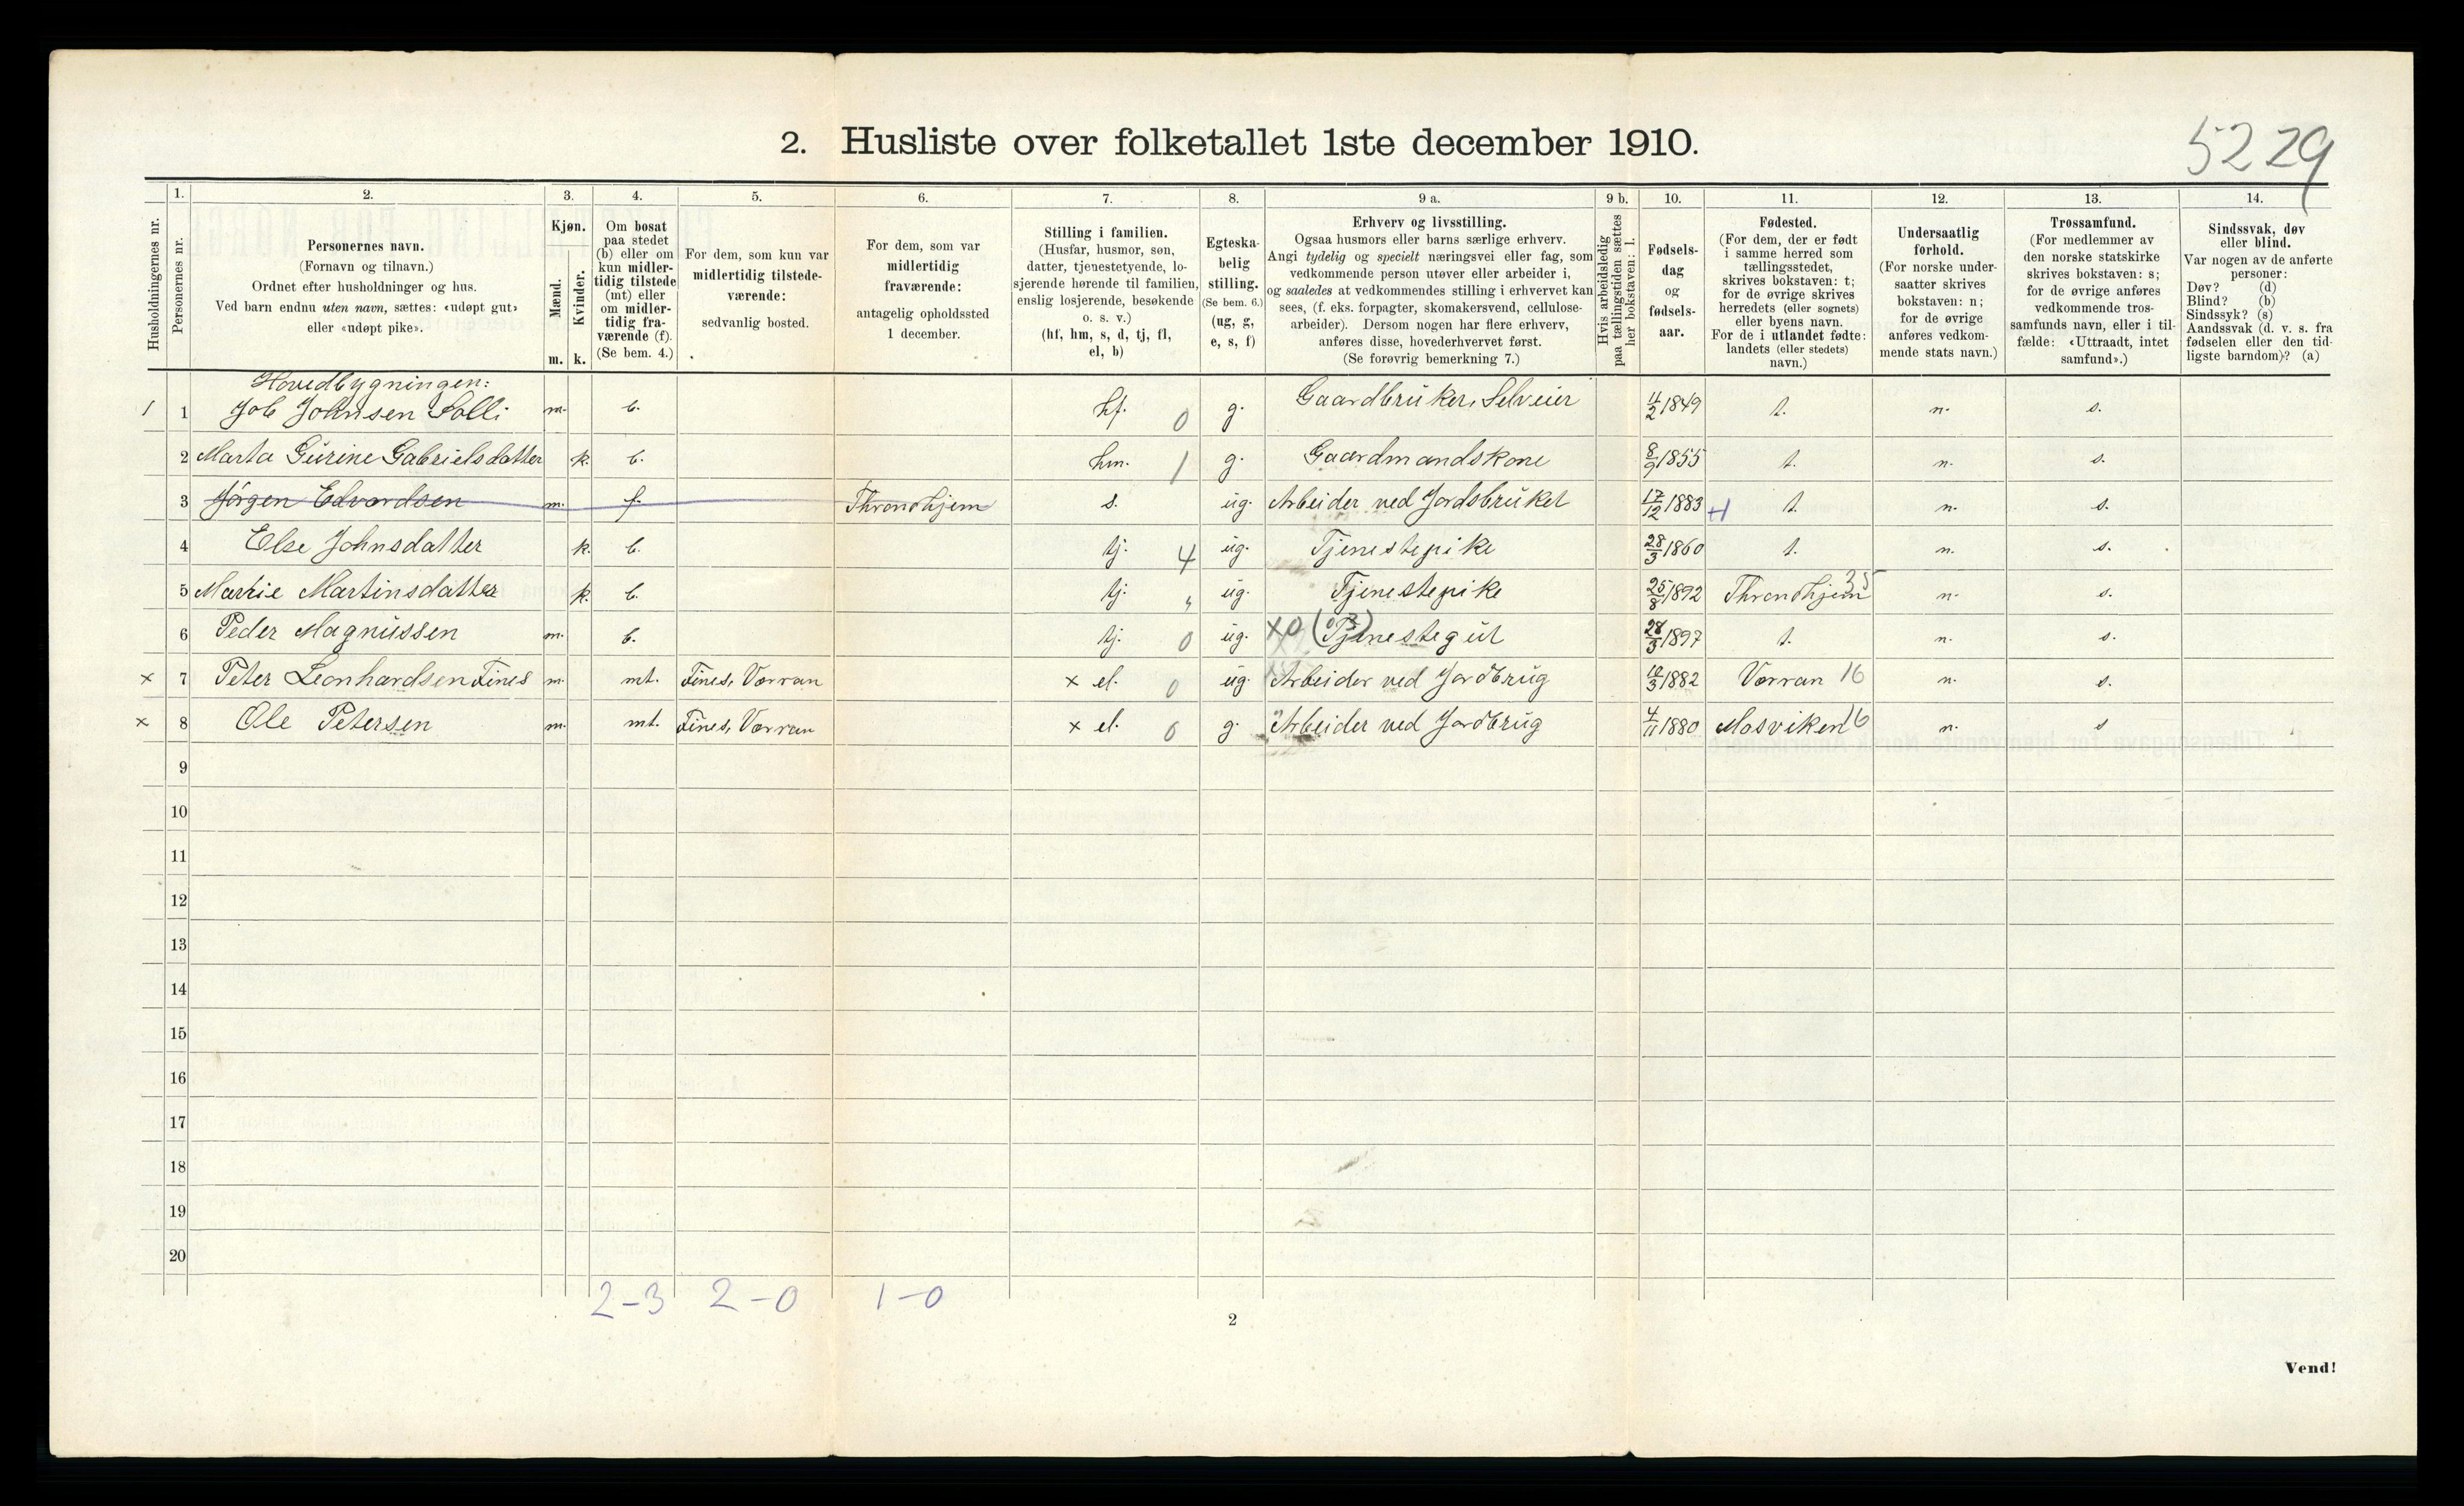 2. Husliste over folketallet 1ste december 1910.
5229
Husholdningernes nr.
1. Personernes nr.
2. Personernes navn.
(Fornavn og tilnavn.)
Ordnet efter husholdninger og hus.
Ved barn endnu uten navn, sættes: «udøpt gut»
eller «udøpt pike».
3. Kjøn.
Mænd. Kvinder.
m. k.
4. Om bosat
paa stedet
(b) eller om
kun midler-
tidig tilstede
(mt) eller
om midler-
tidig fra-
værende (f).
(Se bem. 4.)
5. For dem, som kun var
midlertidig tilstede-
værende:
sedvanlig bosted.
6. For dem, som var
midlertidig
fraværende:
antagelig opholdssted
1 december.
7. Stilling i familien.
(Husfar, husmor, søn,
datter, tjenestetyende, lo-
sjerende hørende til familien,
enslig losjerende, besøkende
o. s. v.)
(hf, hm, s, d, tj, fl,
el, b)
8. Egteska-
belig
stilling.
(Se bem. 6.)
(ug, g,
e, s, f)
9 a. Erhverv og livsstilling.
Ogsaa husmors eller barns særlige erhverv.
Angi tydelig og specielt næringsvei eller fag, som
vedkommende person utøver eller arbeider i,
og saaledes at vedkommendes stilling i erhvervet kan
sees, (f. eks. forpagter, skomakersvend, cellulose-
arbeider). Dersom nogen har flere erhverv,
anføres disse, hovederhvervet først.
(Se forøvrig bemerkning 7.)
9 b. Hvis arbeidsledig
paa tællingstiden sættes
her bokstaven: l.
10. Fødsels-
dag
og
fødsels-
aar.
11. Fødested.
(For dem, der er født
i samme herred som
tællingsstedet,
skrives bokstaven: t;
for de øvrige skrives
herredets (eller sognets)
eller byens navn.
For de i utlandet fødte:
landets (eller stedets)
navn.)
12. Undersaatlig
forhold.
(For norske under-
saatter skrives
bokstaven: n;
for de øvrige
anføres vedkom-
mende stats navn.)
13. Trossamfund.
(For medlemmer av
den norske statskirke
skrives bokstaven: s;
for de øvrige anføres
vedkommende tros-
samfunds navn, eller i til-
fælde: «Uttraadt, intet
samfund».)
14. Sindssvak, døv
eller blind.
Var nogen av de anførte
personer:
Døv? (d)
Blind? (b)
Sindssyk? (s)
Aandssvak (d. v. s. fra
fødselen eller den tid-
ligste barndom)? (a)
Hovedbygningen:
1 1 Job Johnsen Solli m. b. hf. 0 g. Gaardbruker, Selveier 11/2 1849 t. n. s.
2 Marta Gurine Gabrielsdatter k. b. hm. 1 g. Gaardmandskone 8/9 1855 t. n. s.
3 Jørgen Edvardsen m. f. Throndhjem s. ug. Arbeider ved Jordsbruket 17/12 1883 t. n. s.
4 Else Johnsdatter k. b. tj. 4 ug. Tjenestepike 28/3 1860 t. n. s.
5 Marie Martinsdatter k. b. tj. " ug. Tjenestepike 25/8 1892 Throndhjem 35 n. s.
6 Peder Magnussen m. b. tj. 0 ug. XO (03) Tjenestegut 28/3 1897 t. n. s.
x 7 Peter Leonhardsen Fines m. mt. Fines, Værran x el. 0 ug. Arbeider ved Jordbrug 12/3 1882 Værran 16 n. s.
x 8 Ole Petersen m. mt. Fines, Værran x el. 0 g. Arbeider ved Jordbrug 4/11 1880 Mosviken 16 n. s
9
10
11
12
13
14
15
16
17
18
19
20
2-3 2-0 1-0
2
Vend!